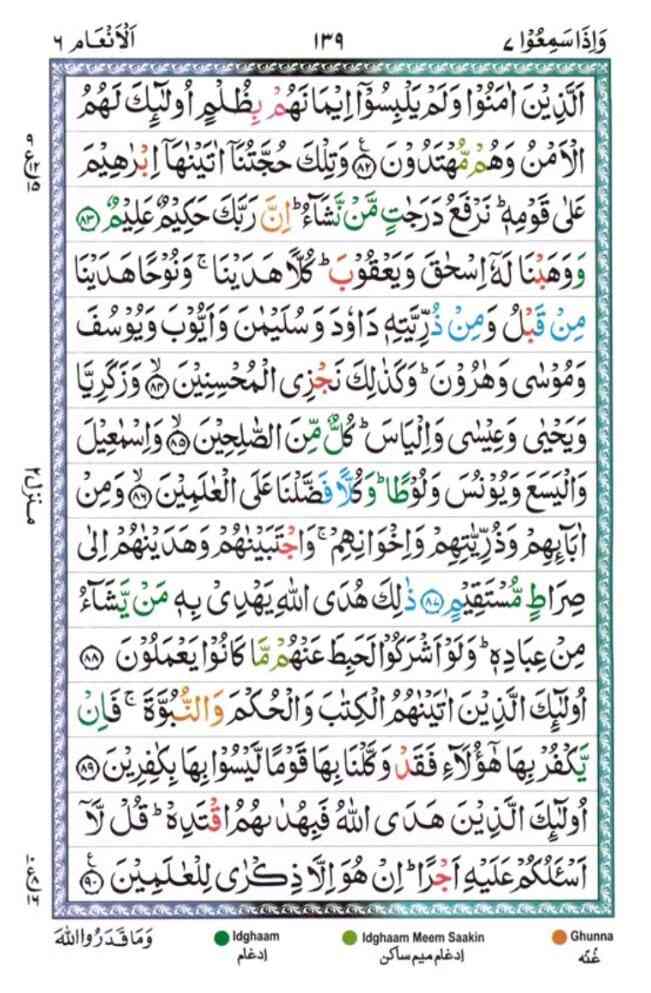 وَاِذَا سَمِعُوْا ٧
١٣٩
اَلْاَنْعَام ٦
اَلَّذِيْنَ اٰمَنُوْا وَلَمْ يَلْبِسُوْۤا اِيْمَانَهُمْ بِظُلْمٍ اُولٰٓئِكَ لَهُمُ
الْاَمْنُ وَهُمْ مُّهْتَدُوْنَ ﴿٨٢﴾ وَتِلْكَ حُجَّتُنَاۤ اٰتَيْنٰهَاۤ اِبْرٰهِيْمَ
عَلٰى قَوْمِهٖ ؕ نَرْفَعُ دَرَجٰتٍ مَّنْ نَّشَآءُ ؕ اِنَّ رَبَّكَ حَكِيْمٌ عَلِيْمٌ ﴿٨٣﴾
وَوَهَبْنَا لَهٗۤ اِسْحٰقَ وَيَعْقُوْبَ ؕ كُلًّا هَدَيْنَا ۚ وَنُوْحًا هَدَيْنَا
مِنْ قَبْلُ وَمِنْ ذُرِّيَّتِهٖ دَاوٗدَ وَسُلَيْمٰنَ وَاَيُّوْبَ وَيُوْسُفَ
وَمُوْسٰى وَهٰرُوْنَ ؕ وَكَذٰلِكَ نَجْزِى الْمُحْسِنِيْنَ ۙ﴿٨٤﴾ وَزَكَرِيَّا
وَيَحْيٰى وَعِيْسٰى وَاِلْيَاسَ ؕ كُلٌّ مِّنَ الصّٰلِحِيْنَ ۙ﴿٨٥﴾ وَاِسْمٰعِيْلَ
وَالْيَسَعَ وَيُوْنُسَ وَلُوْطًا ؕ وَكُلًّا فَضَّلْنَا عَلَى الْعٰلَمِيْنَ ۙ﴿٨٦﴾ وَمِنْ
اٰبَآئِهِمْ وَذُرِّيّٰتِهِمْ وَاِخْوَانِهِمْ ۚ وَاجْتَبَيْنٰهُمْ وَهَدَيْنٰهُمْ اِلٰى
صِرَاطٍ مُّسْتَقِيْمٍ ﴿٨٧﴾ ذٰلِكَ هُدَى اللّٰهِ يَهْدِىْ بِهٖ مَنْ يَّشَآءُ
مِنْ عِبَادِهٖ ؕ وَلَوْ اَشْرَكُوْا لَحَبِطَ عَنْهُمْ مَّا كَانُوْا يَعْمَلُوْنَ ﴿٨٨﴾
اُولٰٓئِكَ الَّذِيْنَ اٰتَيْنٰهُمُ الْكِتٰبَ وَالْحُكْمَ وَالنُّبُوَّةَ ۚ فَاِنْ
يَّكْفُرْ بِهَا هٰۤؤُلَآءِ فَقَدْ وَكَّلْنَا بِهَا قَوْمًا لَّيْسُوْا بِهَا بِكٰفِرِيْنَ ﴿٨٩﴾
اُولٰٓئِكَ الَّذِيْنَ هَدَى اللّٰهُ فَبِهُدٰىهُمُ اقْتَدِهْ ؕ قُلْ لَّاۤ
اَسْـَٔلُكُمْ عَلَيْهِ اَجْرًا ؕ اِنْ هُوَ اِلَّا ذِكْرٰى لِلْعٰلَمِيْنَ ﴿٩٠﴾
منزل ٢
وَمَا قَدَرُوا اللّٰهَ
Idghaam
ادغام
Idghaam Meem Saakin
ادغام میم ساکن
Ghunna
غُنّہ